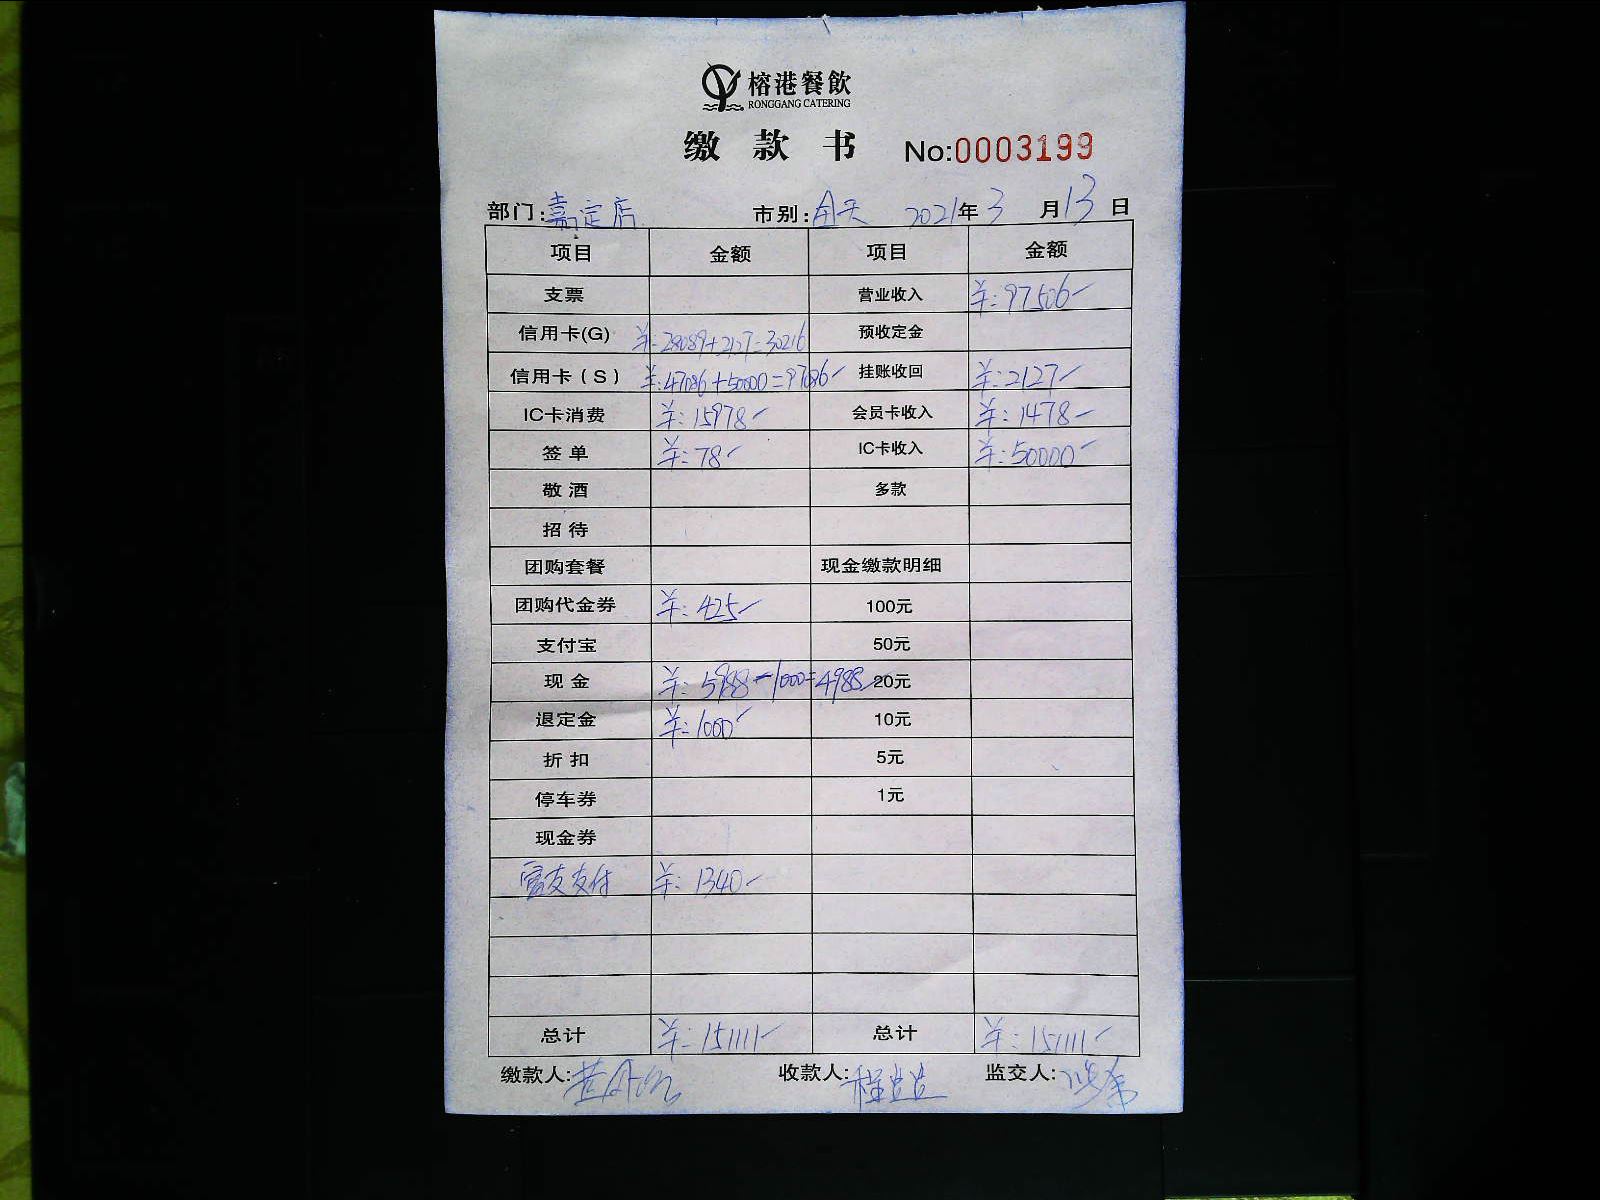 榕港餐飲
RONGGANG CATERING
缴款书 No:0003199
部门:嘉定店 市别:全天 2021年3月13日
项目 金额 项目 金额
支票 营业收入 ¥:97506
信用卡(G) ¥:28089+2127=30216 预收定金
信用卡(S) ¥:47086+50000=97086 挂账收回 ¥:2127
IC卡消费 ¥:15978 会员卡收入 ¥:1478
签单 ¥:78 IC卡收入 ¥:50000
敬酒 多款
招待
团购套餐 现金缴款明细
团购代金券 ¥:425 100元
支付宝 50元
现金 ¥:5988-1000=4988 20元
退定金 ¥:1000 10元
折扣 5元
停车券 1元
现金券
支付 ¥:1340
总计 ¥:151111 总计 ¥:151111
缴款人: 收款人:程 监交人: